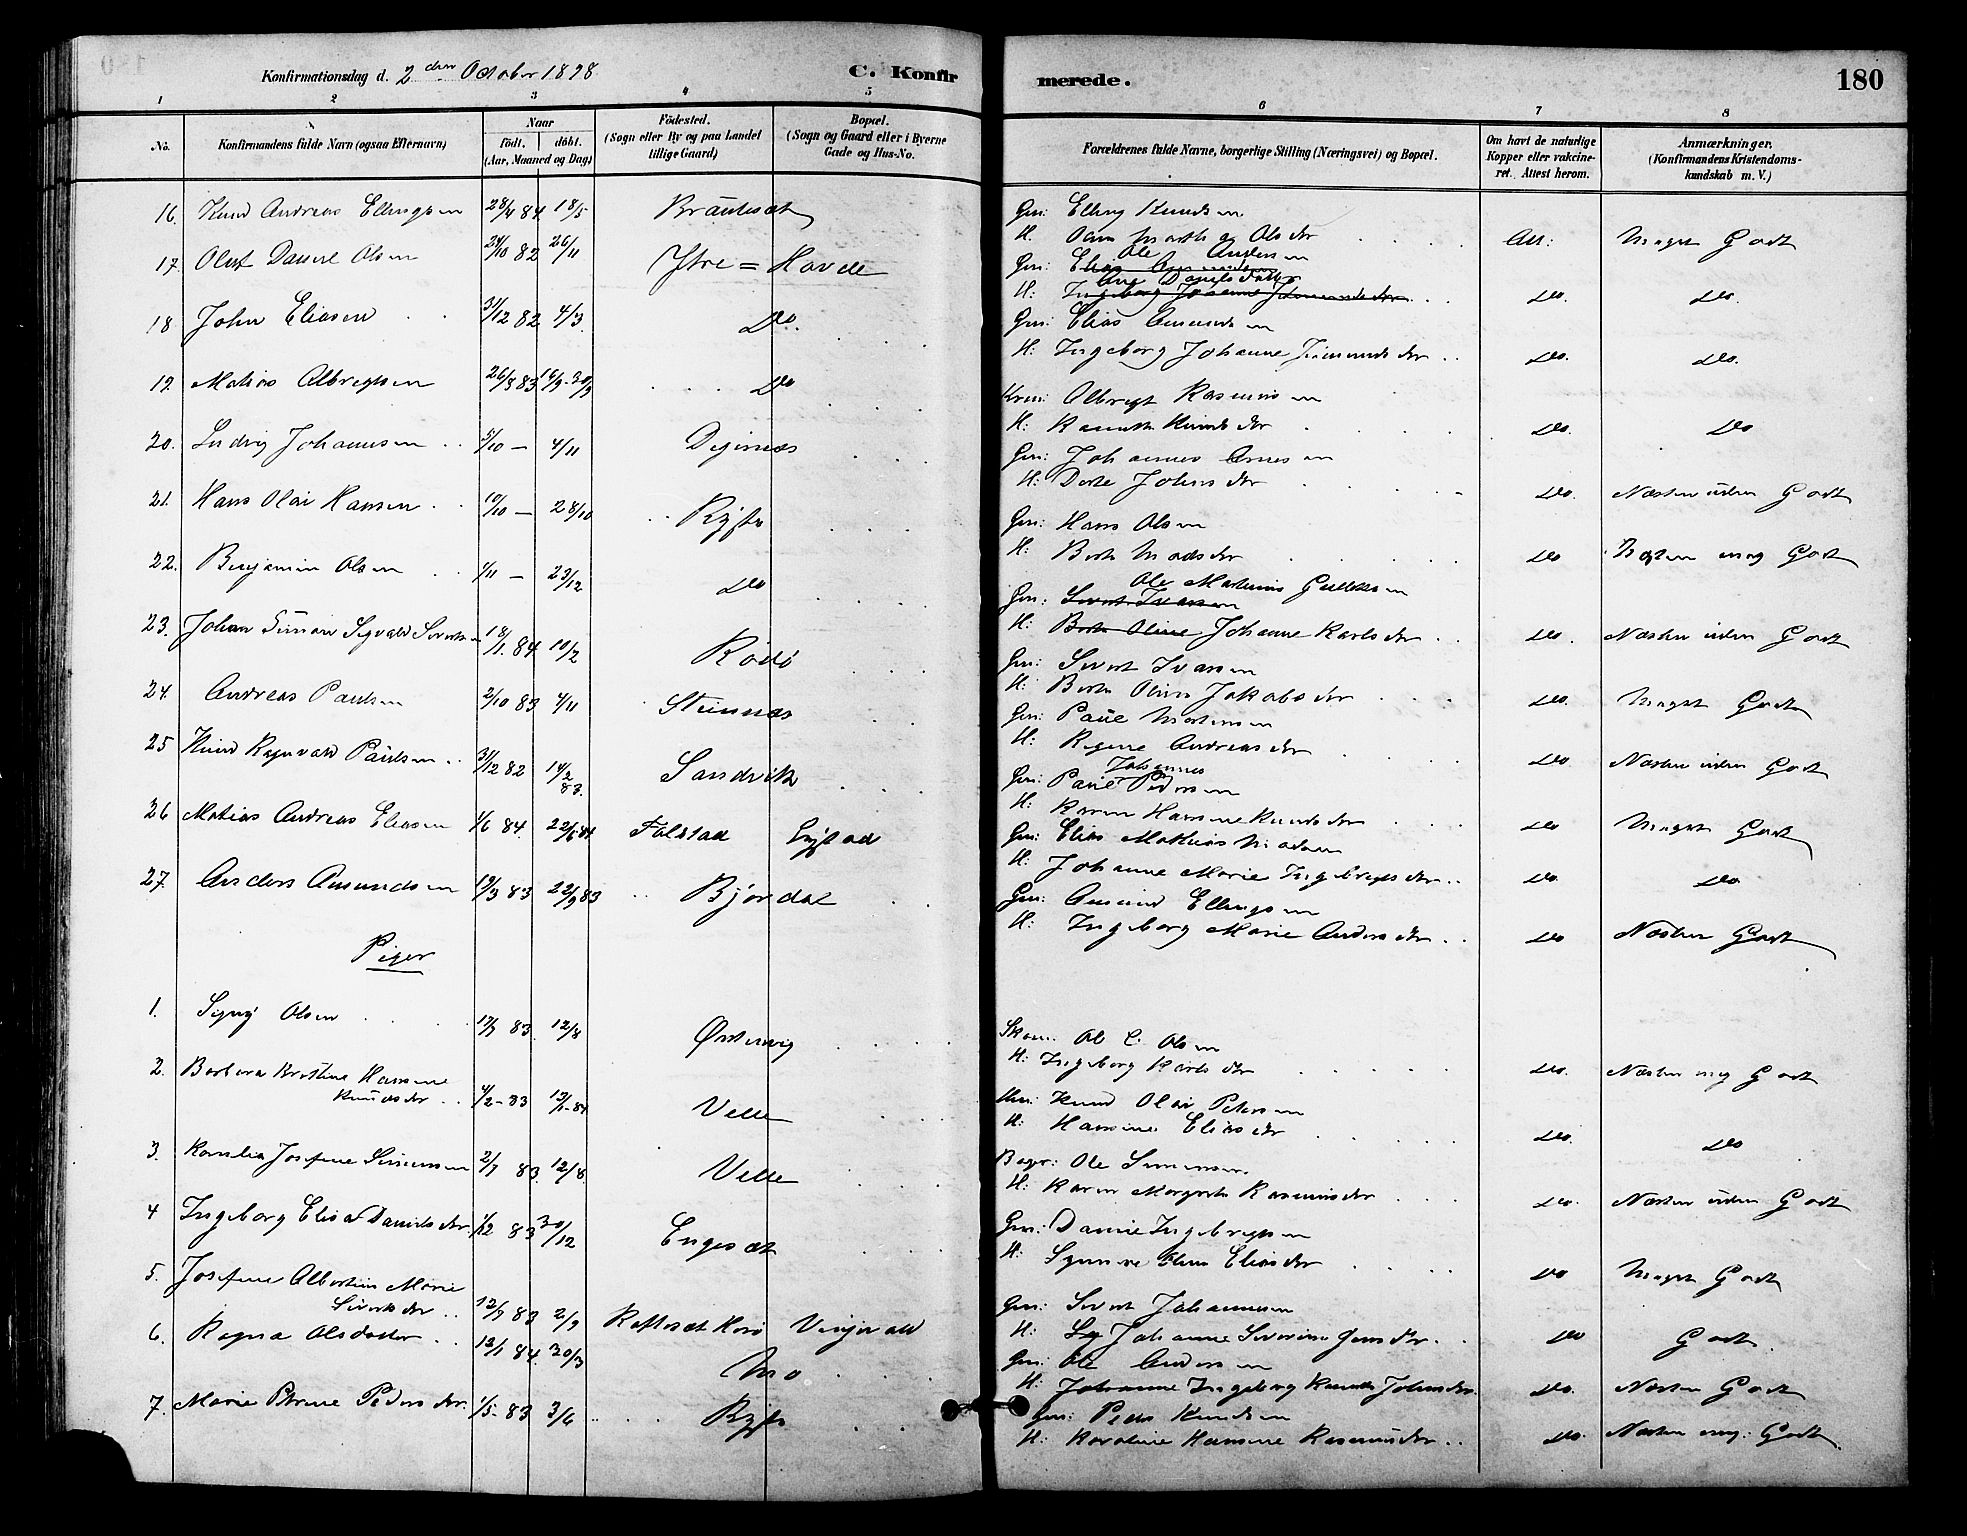 Konfirmationsdag d. 2den October 1898
C. Konfirmerede.
180
1 2 3 4 5 6 7 8
No.
Konfirmandens fulde Navn (ogsaa Efternavn)
Naar
födt. döbt.
(Aar, Maaned og Dag)
Födested.
(Sogn eller By og paa Landet
tillige Gaard)
Bopæl.
(Sogn og Gaard eller i Byerne
Gade og Hus-No.
Forældrenes fulde Navne, borgerlige Stilling (Næringsvei) og Bopæl.
Om havt de naturlige
Kopper eller vakcine-
ret. Attest herom.
Anmærkninger.
(Konfirmandens Kristendoms-
kundskab m. V.)
16. Knud Andreas Ellingsen 28/4 84 18/5
Gm: Elling Knudsen
H. Olsdr Att: Meget Godt
17. Oluf Daniel Olsen 29/10 82 26/11 Ytre = Havde
Gm: Ole Andersen
H: Danielsdatter Do. Do.
18 John Eliasen 31/12 82 4/3. Do.
Gm: Elias Amundsen
H: Ingeborg Johanne Do. Do.
19. Matias Albregtsen 26/8 83 16/9-30/9 Do
Kvm: Albregt Rasmussen
H: Knudsdr Do. Do
20. Ludvig Johannesen 5/10 — 4/11 Digernæs
Gm: Johannes Arnesen
H: Dorte Johnsdr Do. Næsten uden Godt
21. Hans Olai Hansen 10/10 — 28/10
Gm: Hans Olsen
H: Berte Madsdr Do Næsten meg Godt
22. Benjamin Olsen 1/11 — 23/12 Do
Gm: Ole Martinus
H: Johanne Karlsdr Do. Næsten uden Godt
23. Johan Simon Sigvald Sivertsen 18/1. 84 10/2 Rodö
Gm: Sivert Ivarsen
H: Berte Oline Jakobsdr Do. Meget Godt
24. Andreas Paulsen 2/10 83 4/11 Steinnæs
Gm: Paul Mortensen
H: Regine Andreasdr Do. Næsten uden Godt
25 Knud Ragnvald Paulsen 31/12 82 14/2 83. Sandvik
Gm: Paul Johannes Pedersen
H: Karen Hansine Knudsdr Do Meget Godt
26 Matias Andreas Eliasen 1/6 84. 22/6 84 Falstad
Gm: Elias Mathias Madsen
H: Johanne Marie Ingebrigtsdr Do. Do
27. Anders Amundsen 12/3 83 22/9 83 Björdal
Gm: Amund Ellingsen
H: Ingeborg Marie Andersdr Do Næsten Godt
Piger
1. Signy Olsen 17/7 83. 12/8 Ørstenvig
Skom. Ole C. Olsen
H: Ingeborg Karlsdr Do. Næsten meg Godt
2. Barbara Kristine Hansine
Knudsdr 4/2-83 Velle
Knud Olai Petersen
H: Hansine Eliasdr Do. Do
3. Kornelia Josefine Simensen 2/7 83 12/8. Velle
Bager: Ole Simensen
H: Karen Margrete Rasmusdr Do. Næsten uden Godt
4 Ingeborg Elisa Danielsdr 1/12 83 30/12 Engeset
Gm: Daniel Ingebrigtsen
H: Eliasdr Do Meget Godt
5. Josefine Albertine Marie
Sivertsdr 12/7 83 2/9
Gm: Sivert Johannesen
H: Johanne Severine Jensdr Do Godt
6. Ragna Olsdatter 12/1 84. 30/3 Mo
Gm: Ole Andersen
H: Johanne Ingeborg Johnsdr Do. Næsten Godt
7. Marie Petrine Pedersdr. 1/5-83 3/6
Gm: Peder Knudsen
H: Karoline Hansine Rasmusdr Do. Næsten meg: Godt